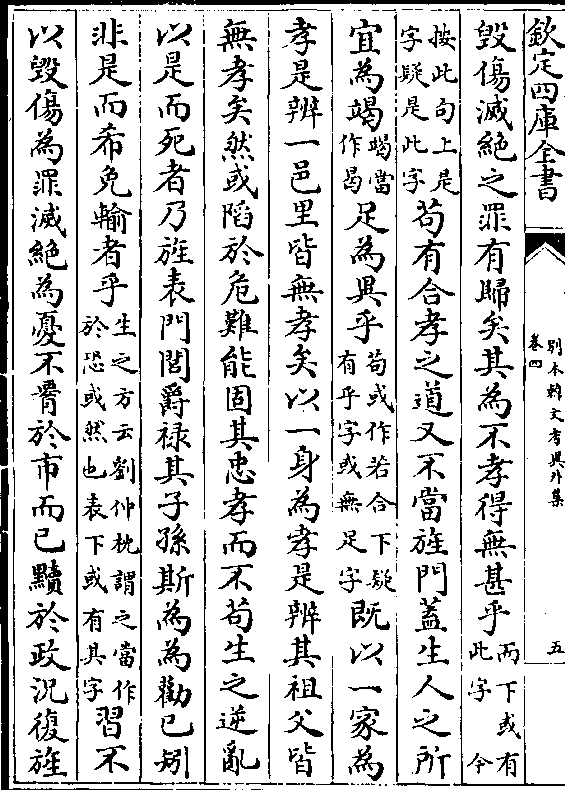 欽定四庫全書
別本韓文考異外集
卷四
五
毀傷滅絕之罪有歸矣其為不孝得無甚乎两下或有此字 今
按此句上是字疑是此字苟有合孝之道又不當旌門蓋生人之所
宜為竭竭當作曷足為異乎苟或作若合下疑有乎字或無足字既以一家為
孝是辨一邑里皆無孝矣以一身為孝是辨其祖父皆
無孝矣然或陷於危難能固其忠孝而不苟生之逆亂
以是而死者乃旌表門閭爵禄其子孫斯為為勸已矧
非是而希免輸者乎生之方云劉仲枕謂之當作於恐或然也表下或有其字曽不
以毀傷為罪滅絕為憂不腎於市而已黷於政况復旌